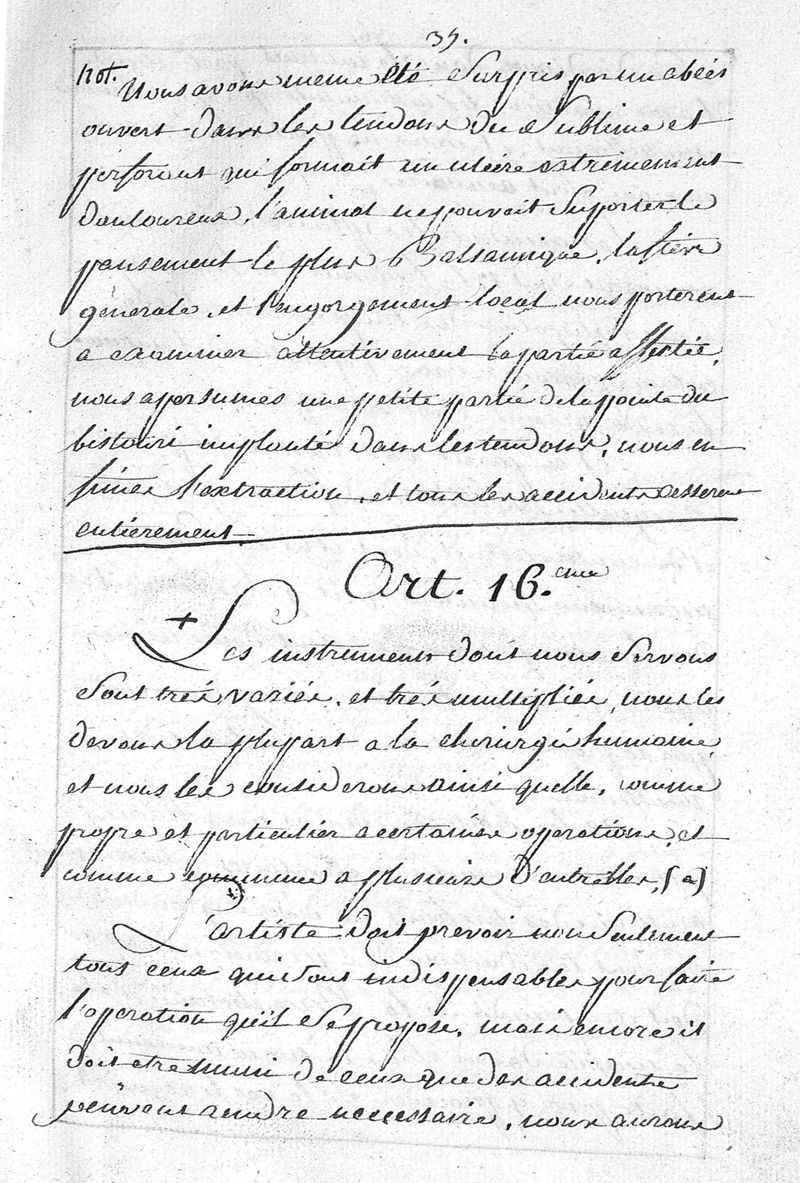 35.
not. Nous avons meme eté Surpris par un abcés
ouvert dans les tendons du Sublime et
perforant qui formait un ulcére extremement
douloureux, l'animal ne pouvait Suporter le
pansement le plus Balsamique, la fiévre
generale, et l'engorgement local nous porterent
a examiner attentivement la partie affectée,
nous apersumes une petite partie de la pointe du
bistouri implanté dans les tendons, nous en
fimes l'extraction, et tous les accidents cesserent
entierement
Art. 16.eme
+ Les instruments dont nous Servons
Sont trés variés, et trés multipliés, nous les
devons la plupart a la chirurgie humaine
et nous les considerons ainsi quelle, comme
propre et particulier a certaines operations, et
comme commune a plusieurs D'entrelles, (a)
L'artiste doit prevoir non Seulement
tous ceux qui Sont indispensables pour faire
l'operation qu'il Se propose, mais encore il
doit etre muni de ceux que des accidents
peuvent rendre necessaire, nous aurons